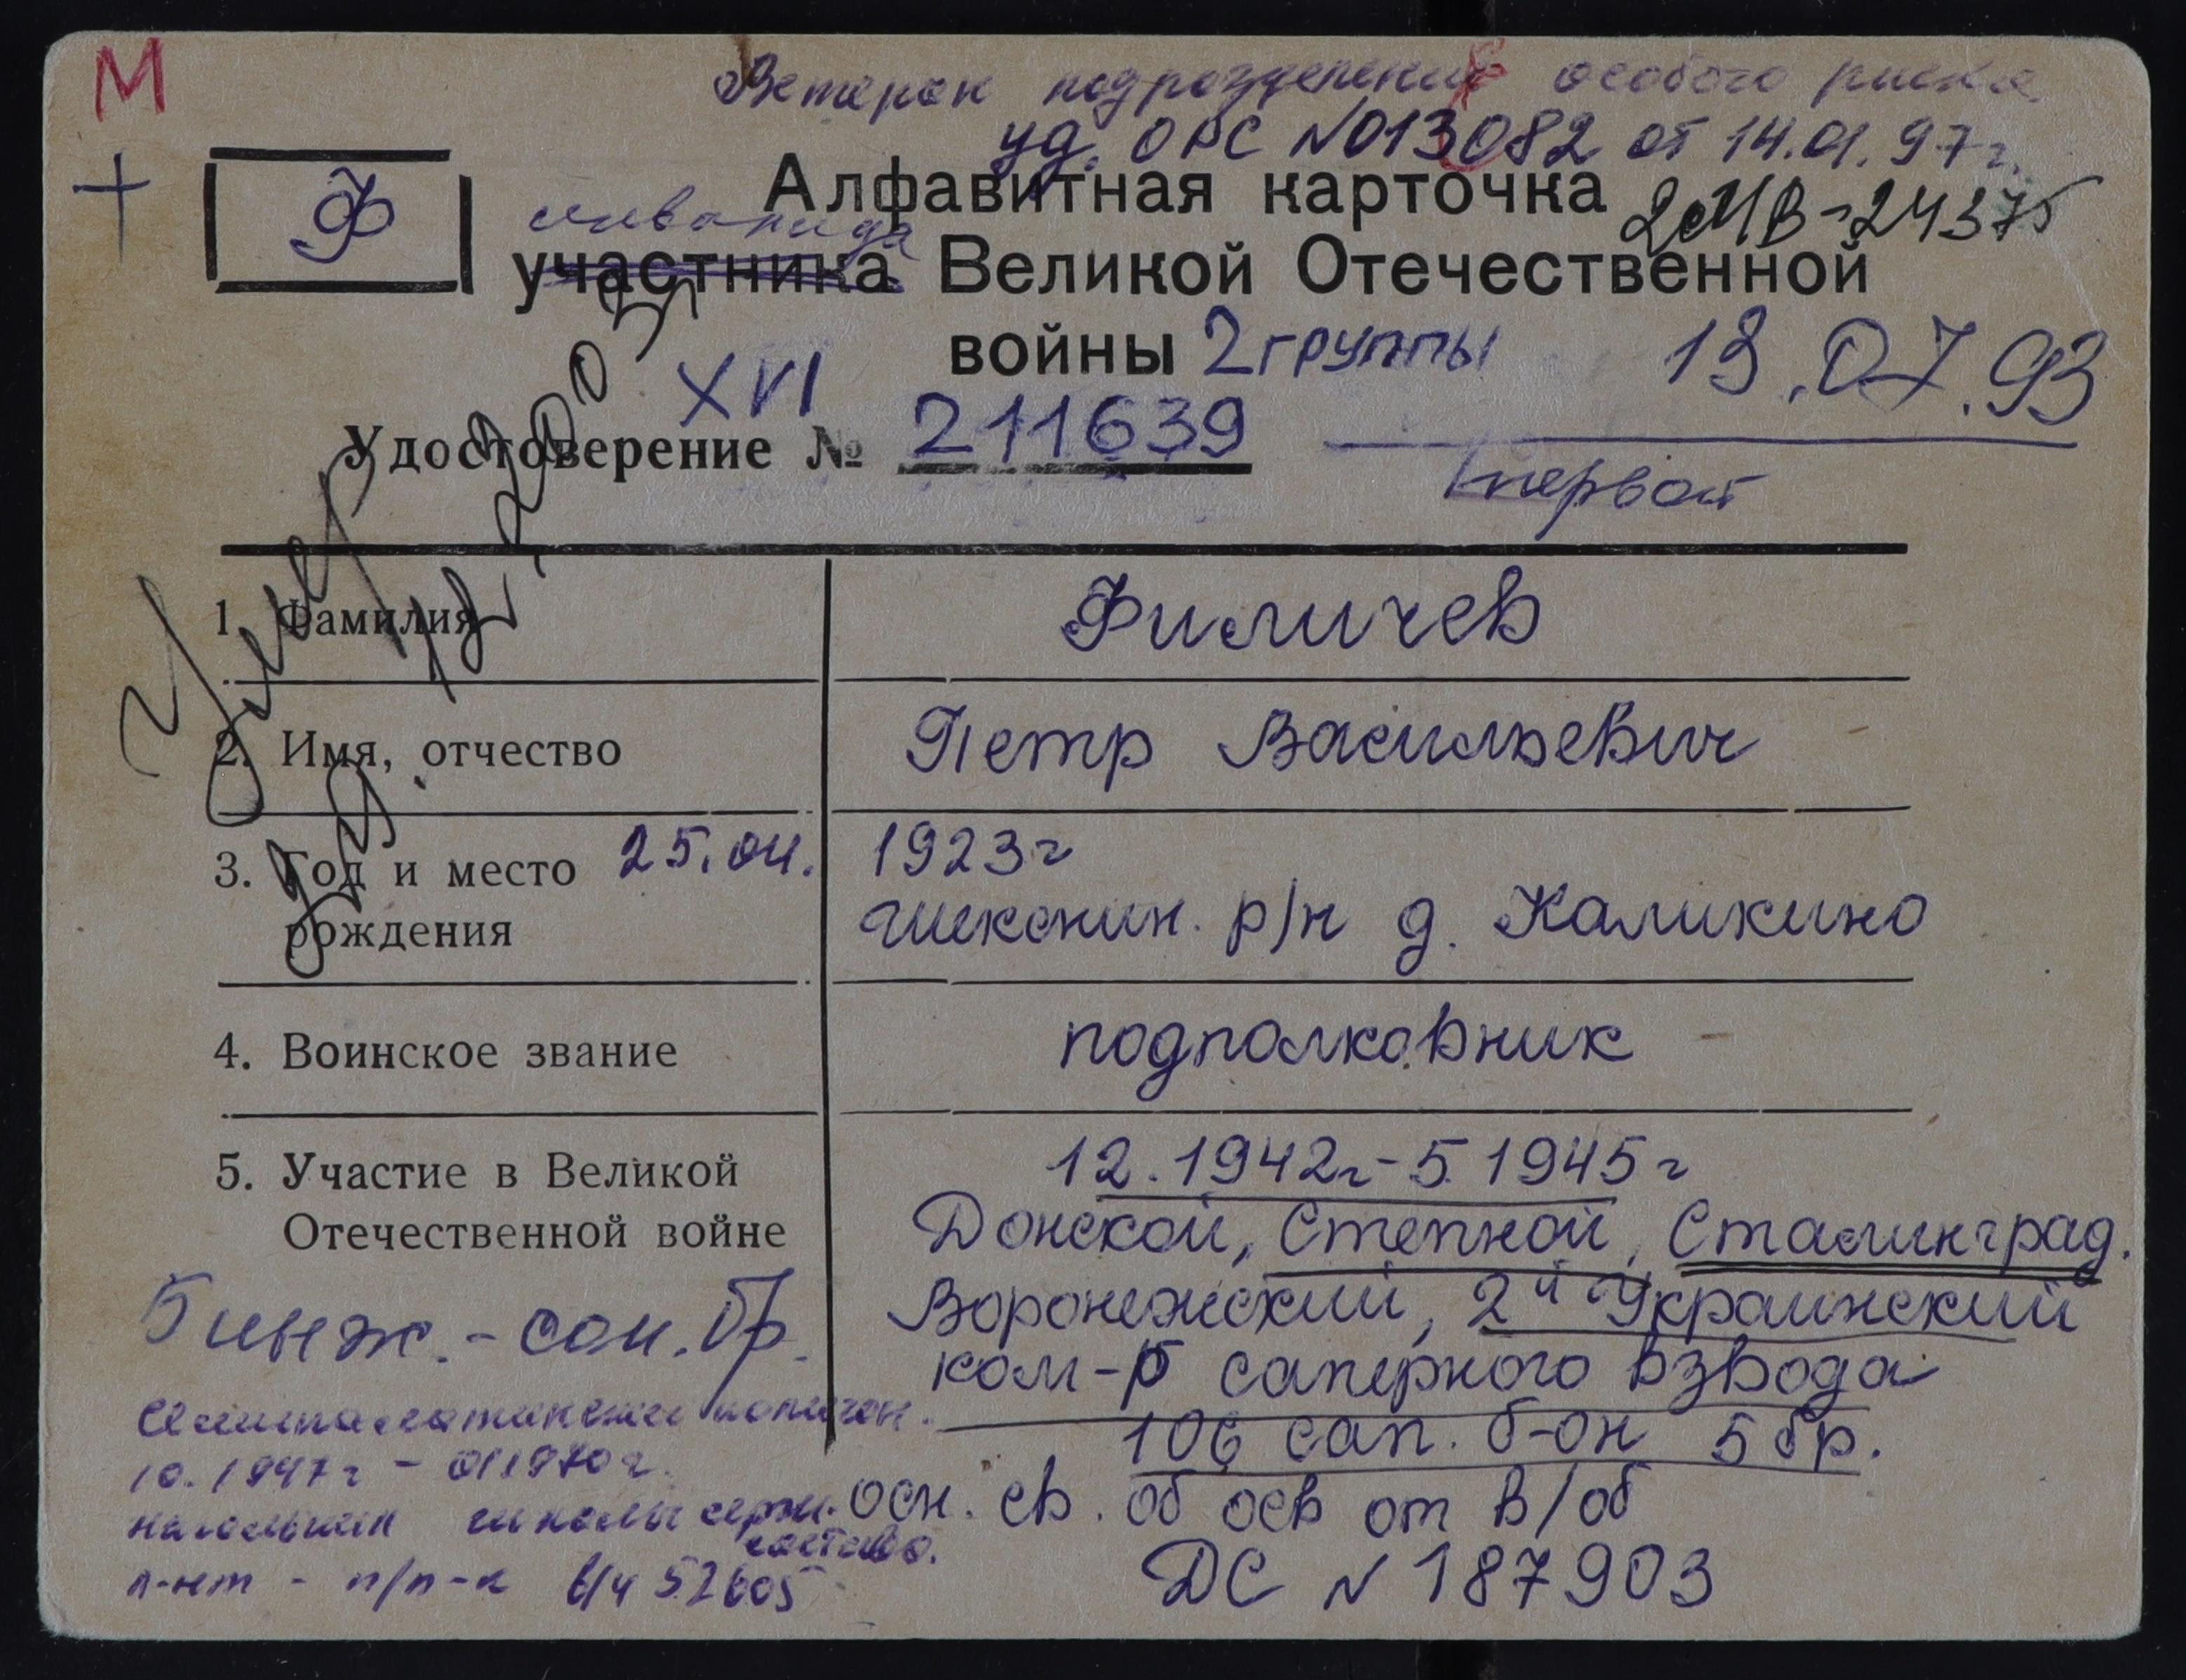 М
Ветеран подразделений особого риска
уд. ОРС №013082 от 14.01.97 г.
Ф
Алфавитная карточка
2МВ-24375
инвалида
участника Великой Отечественной
войны 2 группы
13.07.93
XVI
Удостоверение № 211639
первой
Умер
1. Фамилия Филичев
2. Имя, отчество Петр Васильевич
3. Год и место рождения 25.04. 1923г
Шекснин. р/н д. Каликино
4. Воинское звание подполковник
5. Участие в Великой Отечественной войне 12.1942г-5.1945г
Донской, Степной, Сталинград.
Воронежский, 2й Украинский
ком-р саперного взвода
106 сап. б-он 5 бр.
осн. св. об осв от в/об
ДС № 187903
5 инж.-сап. бр.
Семипалатинский полигон.
10.1947г -
начальник школы серж.
состава.
л-нт - п/п-к в/ч 52605